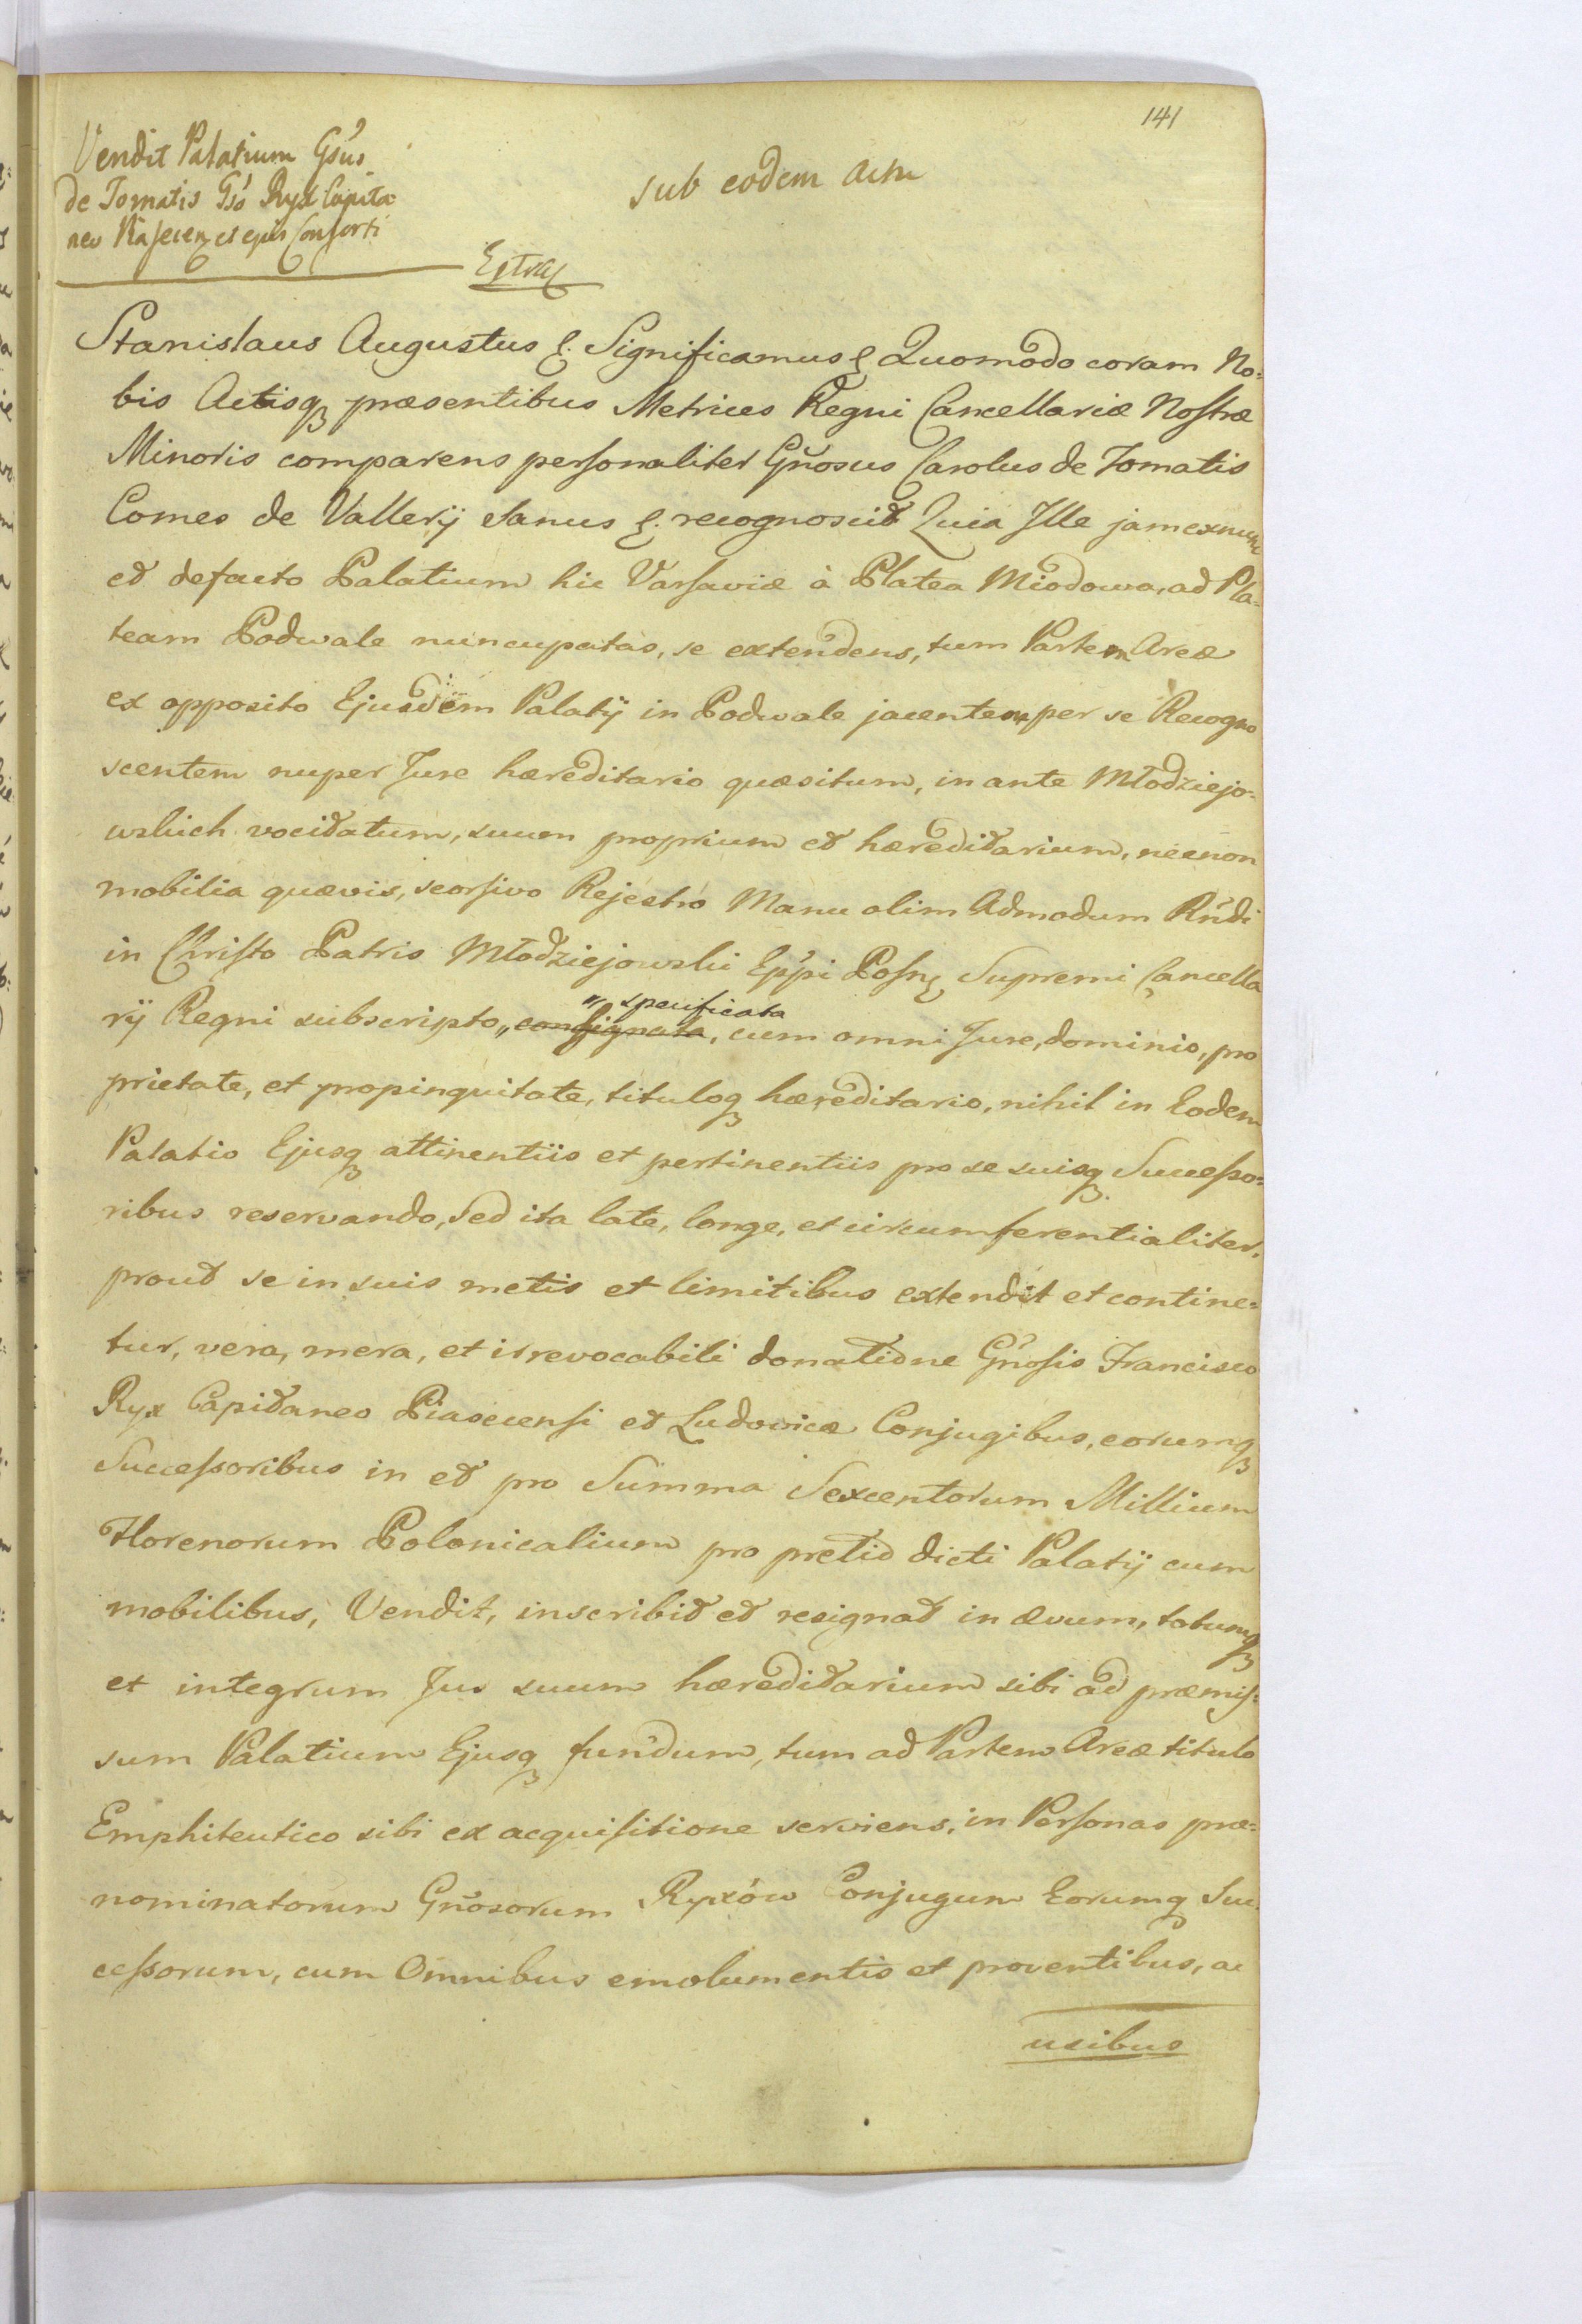 141
Vendit Palatium Gsus
de Tomatis Gso Ryx Capita
neo Piasecen et ejus Consorti
sub eodem actu
Extrad
Stanislaus Augustus &. Significamus & Quomodo coram No=
bis Actisq præsentibus Metrices Regni Cancellariæ Nostræ
Minoris comparens personaliter Gnosus Carolus de Tomatis
Comes de Vallerij sanus &. recognoscit Quia Ille jam exnunc
et defacto Palatium hic Varsaviæ à Platea Miodowa, ad Pla=
team Podwale nuncupatas, se extendens, tum Partem Areæ
ex opposito Ejusdem Palatij in Podwale jacentem per se Recogno
scentem nuper Jure hæreditario quæsitum, in ante Młodziejo=
wskich vocitatum, suum proprium et hæreditarium, necnon
mobilia quævis, seorsivo Rejestro Manu olim Admodum Rndi
in Christo Patris Młodziejowski Eppi Posn Supremi Cancella
rij Regni subscripto,, consignata, cum omni Jure, dominio, pro
,, specificata
prietate, et propinquitate, tituloq hæreditario, nihil in Eodem
Palatio Ejusq attinentiis et pertinentiis pro se suisq Successo=
ribus reservando, sed ita late, longe, et circumferentialiter,
prout se in suis metis et limitibus extendit et contine=
tur, vera, mera, et irrevocabili donatione Gnosis Francisco
Ryx Capitaneo Piasecensi et Ludovicæ Conjugibus, eorumq
Successoribus in et pro Summa Sexcentorum Millium
Florenorum Polonicalium pro pretio dicti Palatij cum
mobilibus, Vendit, inscribit et resignat in ævum, totumq
et integrum Jus suum hæreditarium sibi ad præmis=
sum Palatium Ejusq fundum, tum ad Partem Areæ titulo
Emphiteutico sibi ex acquisitione serviens, in Personas præ=
nominatorum Gnosorum Ryxów Conjugum Eorumq Suc
cessorum, cum Omnibus emolumentis et proventibus, ac
usibus